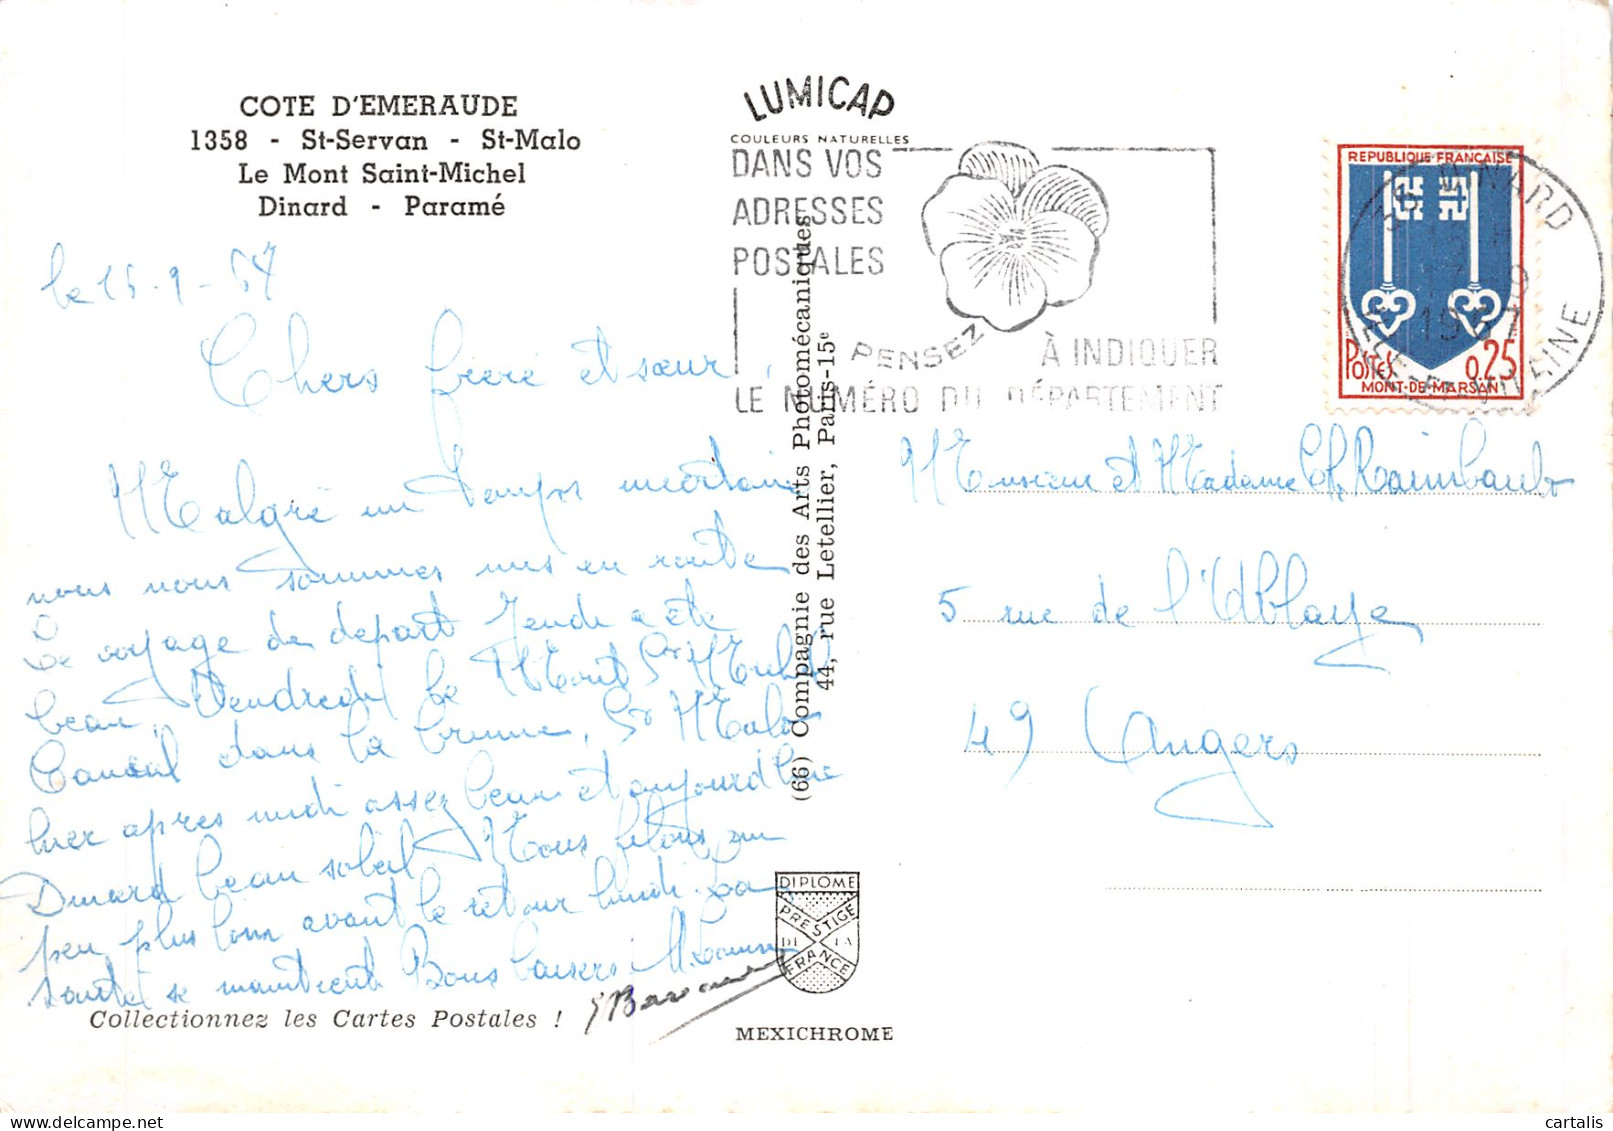 COTE D'EMERAUDE
1358 - St-Servan - St-Malo
Le Mont Saint-Michel
Dinard - Paramé
le 15-9-67
Chers frère et sœur,
Malgré un temps incertain
nous nous sommes mis en route
Le voyage de départ Jeudi a été
beau, Vendredi le Mont St Michel
Cancal dans la brume, St Malo
hier après midi assez beau et aujourd hui
Dinard beau soleil Nous filons un
peu plus loin avant le retour lundi. La
santé se maintient Bons baisers
Collectionnez les Cartes Postales !
LUMICAP
COULEURS NATURELLES
DANS VOS
ADRESSES
POSTALES
PENSEZ
À INDIQUER
LE NUMÉRO DU DÉPARTEMENT
(66) Compagnie des Arts Photomécaniques
44, rue Letellier, Paris-15e
DIPLOME
PRESTIGE
DE LA
FRANCE
MEXICHROME
REPUBLIQUE FRANÇAISE
POSTES 0,25
MONT-DE-MARSAN
35 DINARD
1967
ILLE-ET-VILAINE
Monsieur et Madame Ch. Raimbault
5 rue de l'Abbaye
49 Angers
cartalis